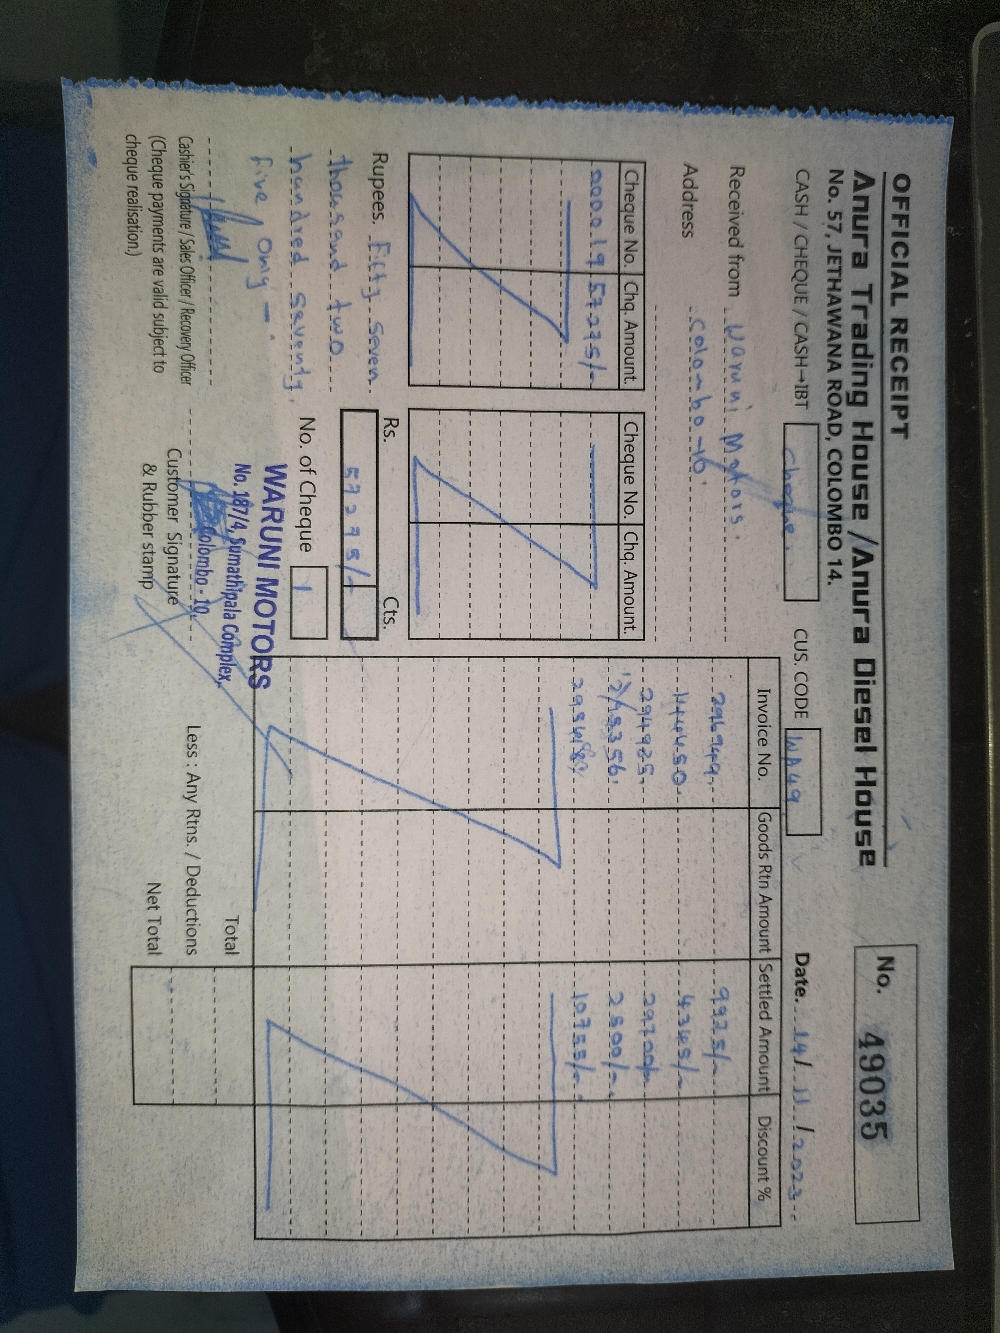 OFFICIAL RECEIPT
No. 49035
Anura Trading House / Anura Diesel House
No. 57, JETHAWANA ROAD, COLOMBO 14.
CASH / CHEQUE / CASH→IBT Cheque. CUS. CODE WA49 Date. 14 / 11 / 2023
Received from Waruni Motors.
Address Colombo -10.
Cheque No. Chq. Amount. Cheque No. Chq. Amount.
000019 57275/-
Invoice No. Goods Rtn Amount Settled Amount Discount %
296949. 9925/-
4345/-
294925. 29700/-
2500/-
10755/-
Rupees. Fifty Seven
thousand two
hundred seventy
five / only -.
Rs. Cts.
57275/-
No. of Cheque 1
WARUNI MOTORS
No. 187/4, Sumathipala Complex,
Colombo - 10.
Cashier's Signature / Sales Officer / Recovery Officer
(Cheque payments are valid subject to
cheque realisation.)
Customer Signature
& Rubber stamp
Total
Less : Any Rtns. / Deductions
Net Total